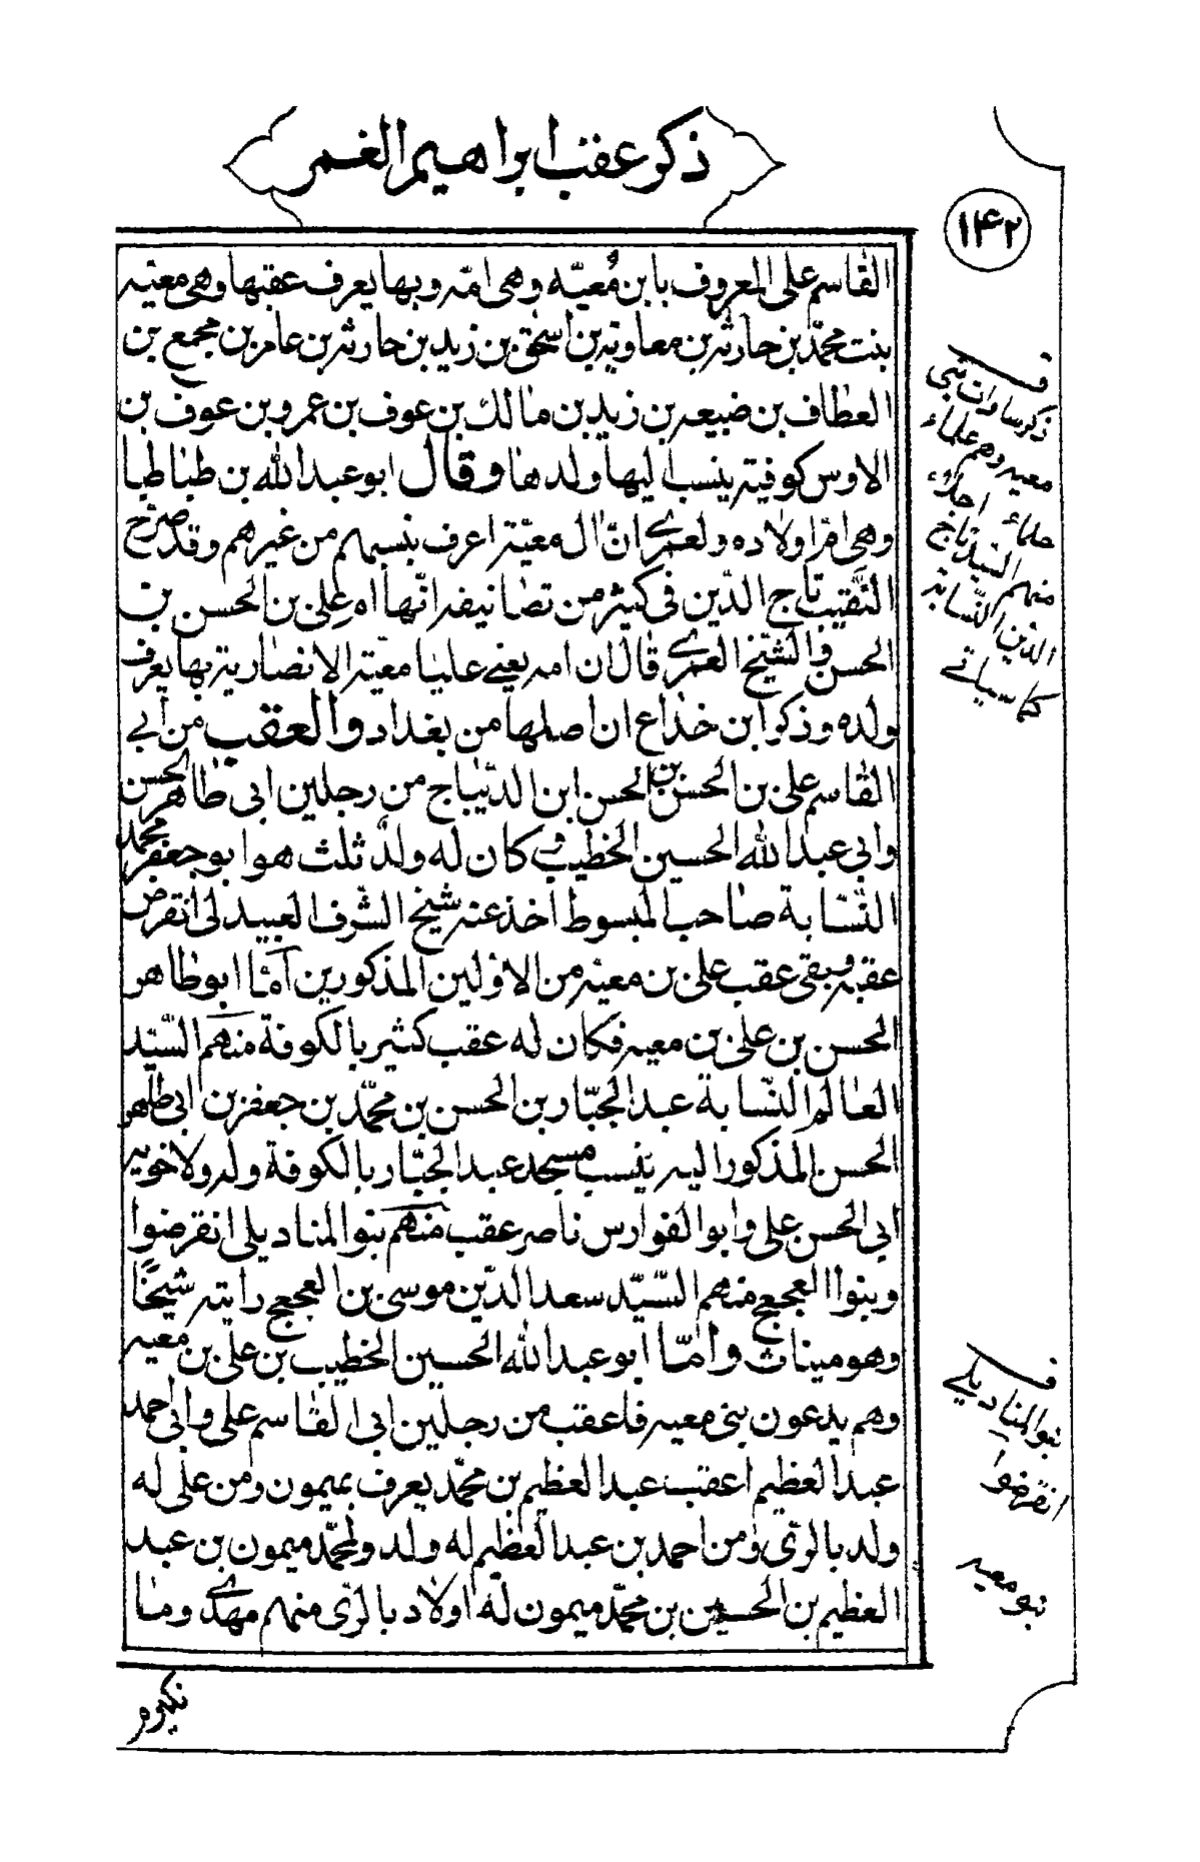 ذكر عقب ابراهيم الغمر
١۴٢
القاسم على المعروف بابن مُعيّه وهى امّه وبها يعرف عقبها وهى معيّه
بنت محمّد بن حارثه بن معاويه بن اسحق بن زيد بن حارثه بن عامر بن مجمع بن
العطاف بن ضبيعه بن زيد بن مالك بن عوف بن عمرو بن عوف بن
الاوس كوفية ينسب اليها ولدها وقال ابو عبد الله بن طباطبا
وهى امّ اولاده ولعمرى انّ ال معيّة اعرف بنسبهم من غيرهم وقد صرّح
النّقيب تاج الدّين فى كثير من تصانيفه انّها ام على بن الحسن بن
الحسن والشّيخ العمرى قال ان امه يعنى عليا معيّة الانصارية بها يعرف
ولده وذكر ابن خداع ان اصلها من بغداد والعقب من ابى
القاسم على بن الحسن بن الحسن ابن الدّيباج من رجلين ابى طاهر الحسن
وابى عبد الله الحسين الخطيب و كان له ولد ثلث هو ابو جعفر محمد
النّسّابة صاحب المبسوط اخذ عنه شيخ الشّرف العبيدلى انقرض
عقبه وبقى عقب على بن معيه من الاوّلين المذكورين امّا ابو طاهر
الحسن بن على بن معيه فكان له عقب كثير بالكوفة منهم السّيّد
العالم النّسّابة عبد الجبّار بن الحسن بن محمّد بن جعفر بن ابى طاهر
الحسن المذكور اليه ينسب مسجد عبد الجبّار بالكوفة وله ولاخويه
ابى الحسن على وابو الفوارس ناصر عقب منهم بنو المناديلى انقرضوا
وبنوا العجعج منهم السّيّد سعد الدّين موسى بن العجعج رايته شيخًا
وهو ميناث وامّا ابو عبد الله الحسين الخطيب بن على بن معيه
وهم يدعون بنى معيه فاعقب من رجلين ابى القاسم على وابى احمد
عبد العظيم اعقب عبد العظيم بن محمّد يعرف بميمون ومن على له
ولد بالرّى ومن احمد بن عبد العظيم له ولد ولمحمّد ميمون بن عبد
العظيم بن الحسين بن محمّد ميمون له اولاد بالرّى منهم مهدى وما
ذكر سادات بنى
معيه وهم علماء
حلماء اجلاء
منهم السّيد تاج
الدّين النّسابة
كما سياتى
بنو المناديلى
انقرضوا
بنو معيه